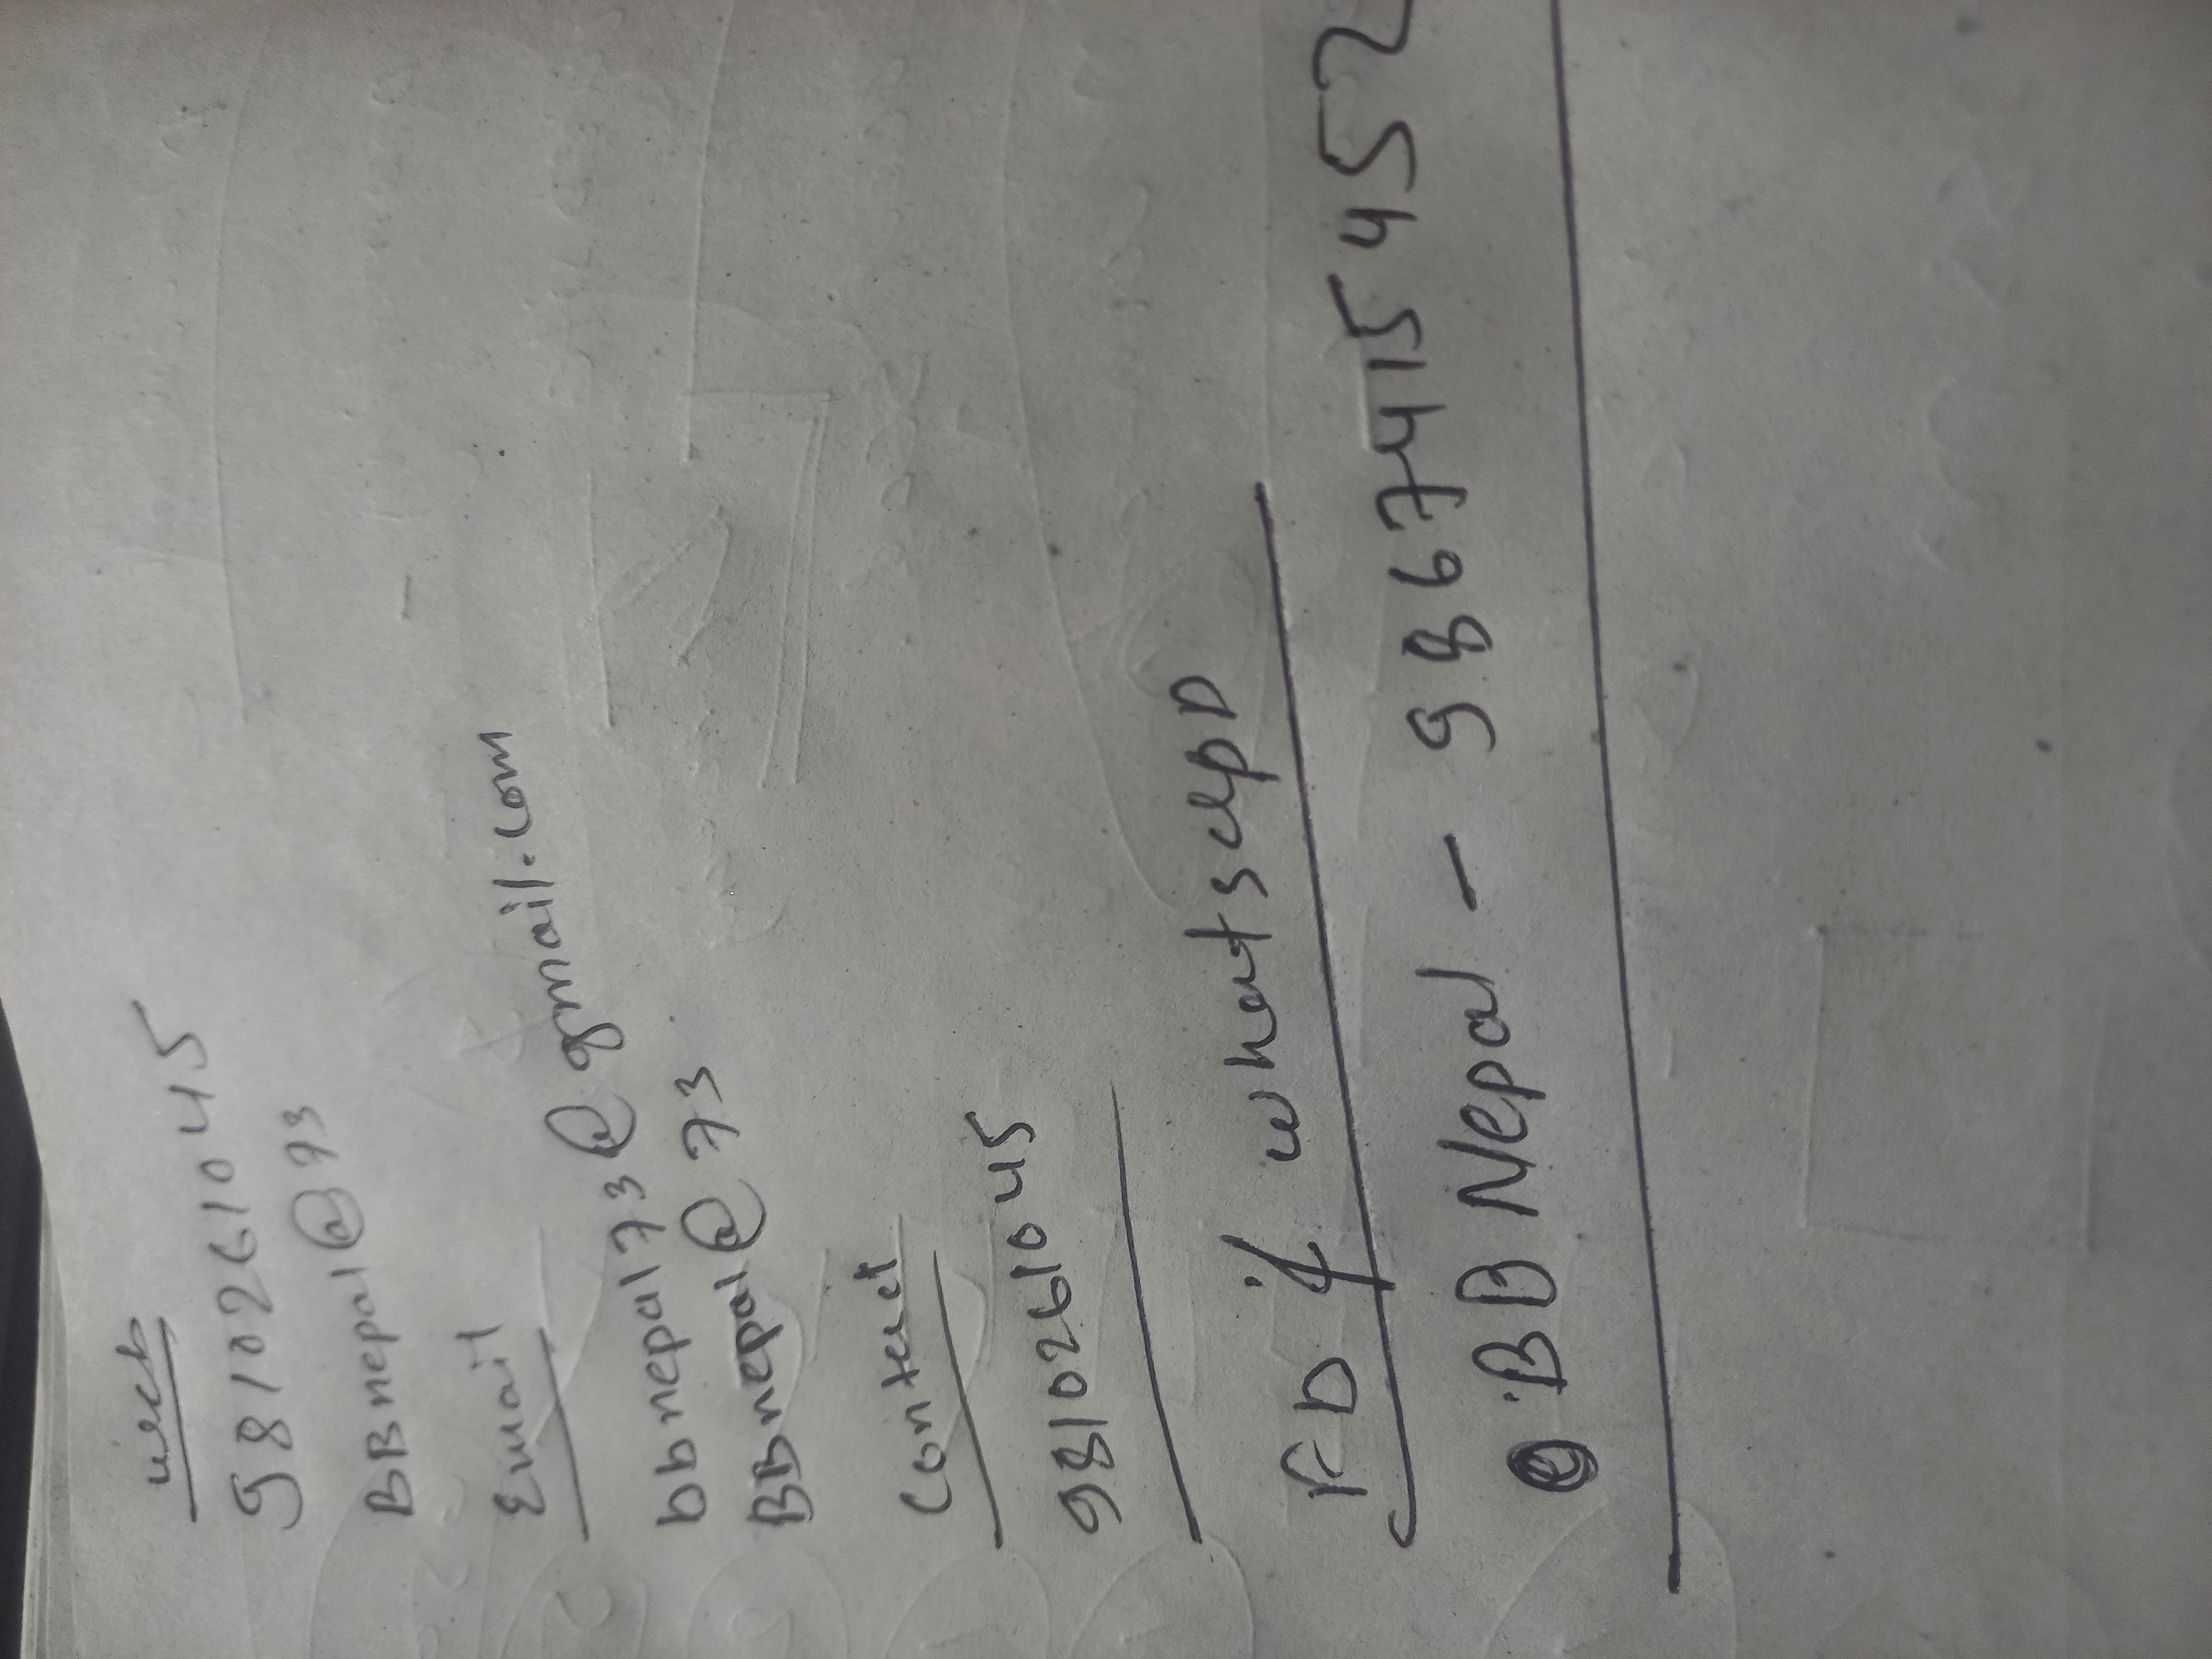 9810261045
BBnepal@93
Email
bbnepal73@gmail.com
BBnepal@73
Contect
9810261045
FB if whatsapp
BB Nepal - 9867415452